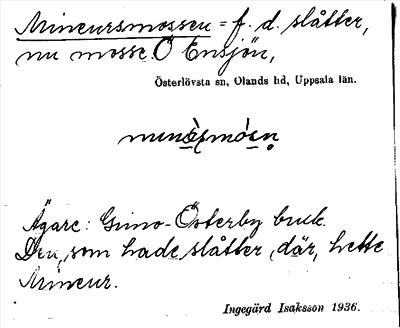 Mineursmossen = f. d. slåtter,
nu mosse. Ö Ensjön,
Österlövsta sn, Olands hd, Uppsala län.
Ägare: Gimo-Österby bruk.
Den, som hade slåtter, där, hette
Mineur.
Ingegärd Isaksson 1936.